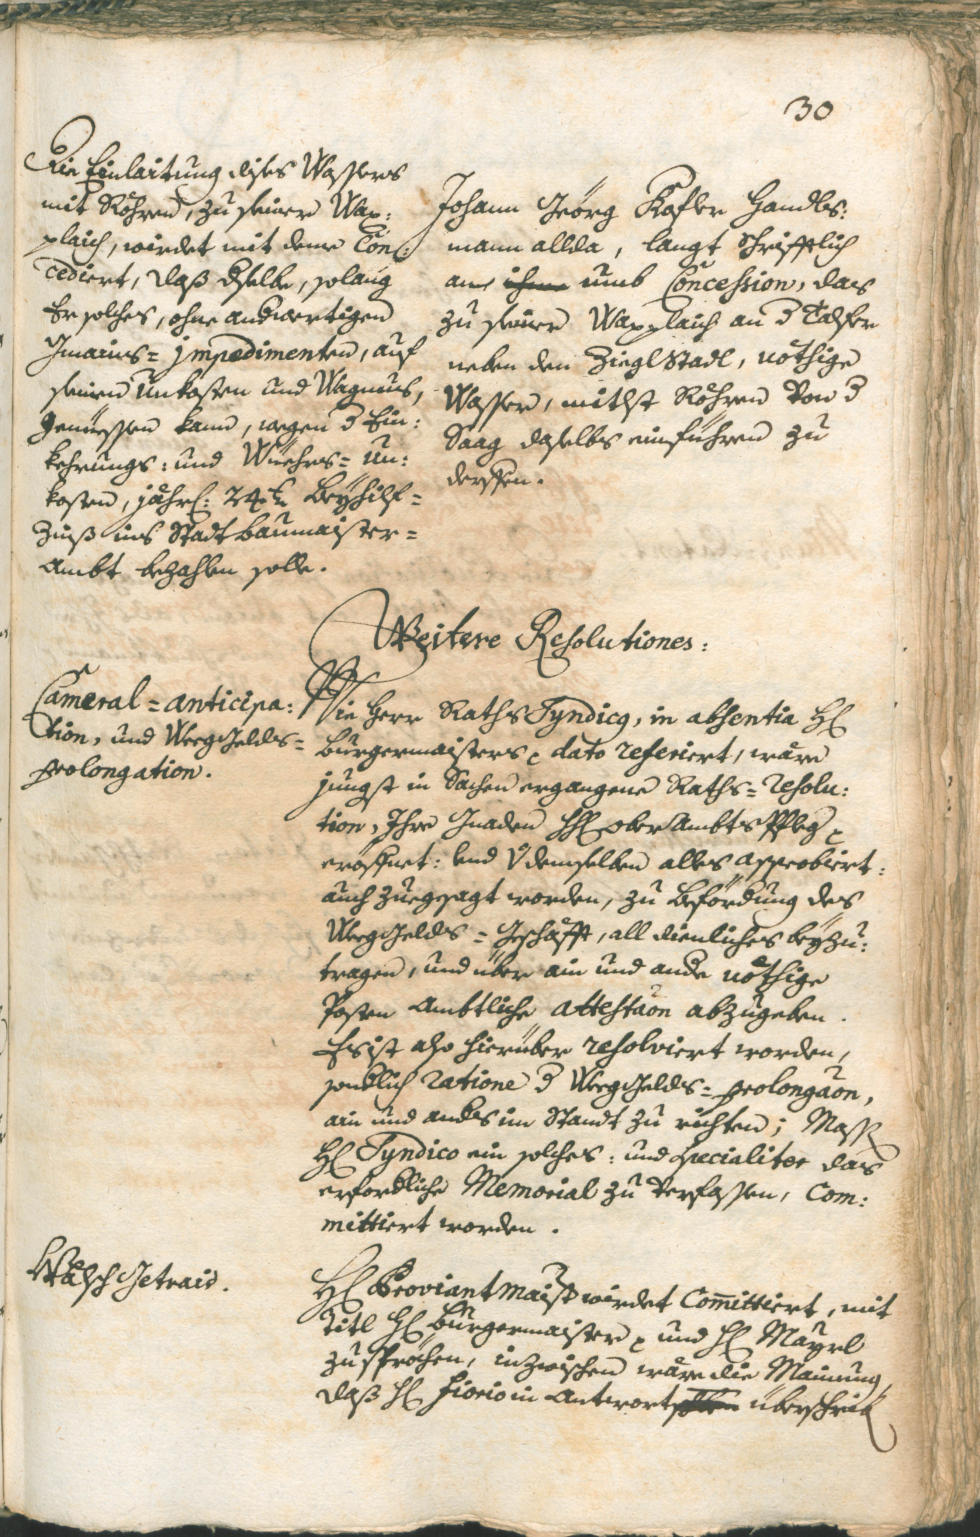 30
Die Einlaitung dises Wassers
mit Röhren, zu seiner Wax:
plaich, wirdet mit deme Con:
cediert, daß dselbe, solang
Er solches, ohne andwertigen
Inwains= jmpedimenten, auf
seinen Unkosten und Wagnus,
geniessen kann, wegen d Ein:
kehrungs: und Wüehrs= un:
kosten, jährl: 24 xr Beyhilf=
Zinß ins Stadtbaumaister=
Ambt bezahlen solle.
Johann Geörg Kofler Handls:
mann allda, langt schrifftlich
an umb Concession, das
zu seiner Waxplaich an d Talfer
neben den Ziegl Stadl, nöthige
Wasser, mitlst Röhren von d
Saag daselbs einführen zu
derffen.
Weitere Resolutiones:
Cameral=anticipa:
tion, und Weeggelds=
prolongation.
Wie Herr Raths Syndicg, in absentia Hl
Burgermaisters p dato referiert, wäre
jüngst in Sachen ergangene Raths=resolu:
tion, Ihro Gnaden HHl ober Ambts Pfleg p
eröffnet: und v demselben alles approbiert:
auch zuegesagt worden, zu befördung des
Weeggelds=Geschäfft, all dienliches beyzu:
tragen, und über ain und ande nöthige
Posten Ambtliche attestaon abzugeben.
Es ist also hierüber resolviert worden,
sondlich ratione d Weeggelds=prolongaon,
ain und andes im Standt zu richten; Mass
Hl Syndico ein solches: und specialiter das
erfordliche Memorial zu verfassen, Com:
mittiert worden.
Wälsch Getraid.
Hl Proviantmaistr wirdet Committiert, mit
Titl Hl Burgermaister p und Hl Mayrl
zu sprechen, inzwischen wäre die Mainung,
daß Hl Fiorio in Antwort überschrib